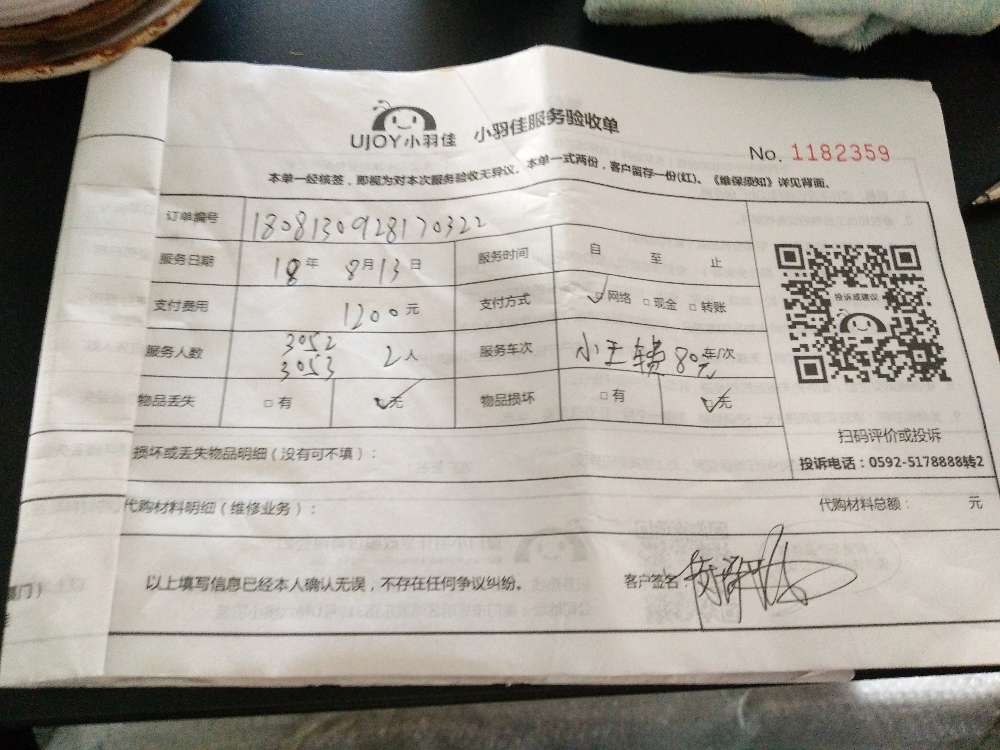 UJOY小羽佳 小羽佳服务验收单
No. 1182359
本单一经核签，即视为对本次服务验收无异议。本单一式两份，客户留存一份(红)。《维保须知》详见背面。
订单编号 1808130928170322
服务日期 18年 8月13日 服务时间 自 至 止
支付费用 1200元 支付方式 ☑网络 □现金 □转账
服务人数 3052 3053 2人 服务车次 小王 80元 车/次
物品丢失 □有 ☑无 物品损坏 □有 ☑无
投诉或建议
扫码评价或投诉
投诉电话：0592-5178888转2
损坏或丢失物品明细（没有可不填）：
代购材料明细（维修业务）： 代购材料总额： 元
以上填写信息已经本人确认无误，不存在任何争议纠纷。 客户签名：
门）